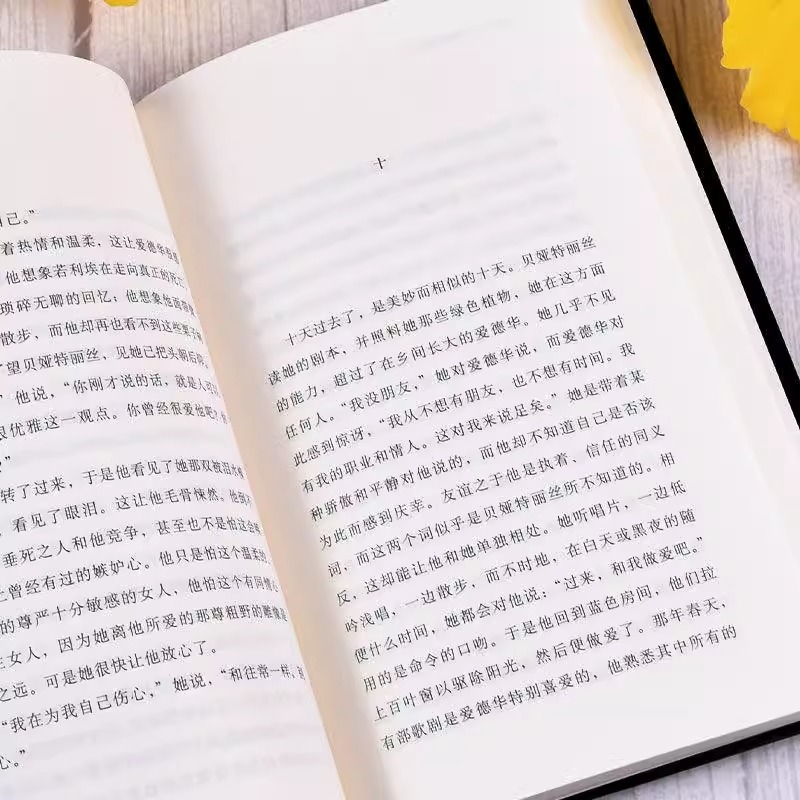 自己。”
着热情和温柔，这让爱德华
他想象若利埃在走向真正的死亡
琐碎无聊的回忆；他想象他
散步，而他却再也看不到这些
了望贝娅特丽丝，见她已把头
他说，“你刚才说的话，就是
很优雅这一观点。你曾经很爱他吧？
？”
转了过来，于是他看见了她那双被
，看见了眼泪。这让他毛骨悚然。他
垂死之人和他竞争，甚至也不是怕这会
上曾经有过的嫉妒心。他只是怕这个温柔的
的尊严十分敏感的女人，他怕这个有同情心
女人，因为她离他所爱的那尊粗野的雕像
之远。可是她很快让他放心了。
“我在为我自己伤心，”她说，“和往常一样，
心。”
十
十天过去了，是美妙而相似的十天。贝娅特丽丝
读她的剧本，并照料她那些绿色植物，她在这方面
的能力，超过了在乡间长大的爱德华。她几乎不见
任何人。“我没朋友，”她对爱德华说，而爱德华对
此感到惊讶，“我从不想有朋友，也不想有时间。我
有我的职业和情人。这对我来说足矣。”她是带着某
种骄傲和平静对他说的，而他却不知道自己是否该
为此而感到庆幸。友谊之于他是执着、信任的同义
词，而这两个词似乎是贝娅特丽丝所不知道的。相
反，这却能让他和她单独相处。她听唱片，一边低
吟浅唱，一边散步，而不时地，在白天或黑夜的随
便什么时间，她都会对他说：“过来，和我做爱吧。”
用的是命令的口吻。于是他回到蓝色房间，他们拉
上百叶窗以驱除阳光，然后便做爱了。那年春天，
有部歌剧是爱德华特别喜爱的，他熟悉其中所有的